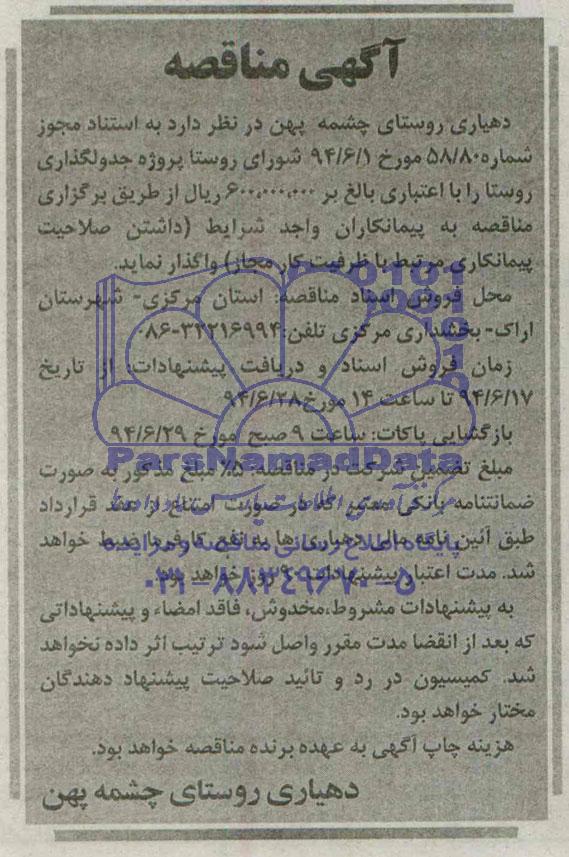 آگهی مناقصه
دهیاری روستای چشمه پهن در نظر دارد به استناد مجوز
شماره ۵۸/۸۰ مورخ ۹۴/۶/۱ شورای روستا پروژه جدولگذاری
روستا را با اعتباری بالغ بر ۶۰۰,۰۰۰,۰۰۰ ریال از طریق برگزاری
مناقصه به پیمانکاران واجد شرایط (داشتن صلاحیت
پیمانکاری مرتبط با ظرفیت کار مجاز) واگذار نماید.
محل فروش اسناد مناقصه: استان مرکزی- شهرستان
اراک- بخشداری مرکزی تلفن: ۳۲۲۱۶۹۹۴-۰۸۶
زمان فروش اسناد و دریافت پیشنهادات: از تاریخ
۹۴/۶/۱۷ تا ساعت ۱۴ مورخ ۹۴/۶/۲۸
بازگشایی پاکات: ساعت ۹ صبح مورخ ۹۴/۶/۲۹
ParsNamadData
مبلغ تضمین شرکت در مناقصه: ۵٪ مبلغ مذکور به صورت
ضمانتنامه بانکی معتبر که در صورت امتناع از عقد قرارداد
طبق آئین نامه مالی دهیاری ها به نفع کارفرما ضبط خواهد
پایگاه اطلاع رسانی مناقصه و مزایده
شد. مدت اعتبار پیشنهادات ۹۰ روز خواهد بود.
۰۲۱-۸۸۳۴۹۶۷۰-۵
به پیشنهادات مشروط،مخدوش، فاقد امضاء و پیشنهاداتی
که بعد از انقضا مدت مقرر واصل شود ترتیب اثر داده نخواهد
شد. کمیسیون در رد و تائید صلاحیت پیشنهاد دهندگان
مختار خواهد بود.
هزینه چاپ آگهی به عهده برنده مناقصه خواهد بود.
دهیاری روستای چشمه پهن